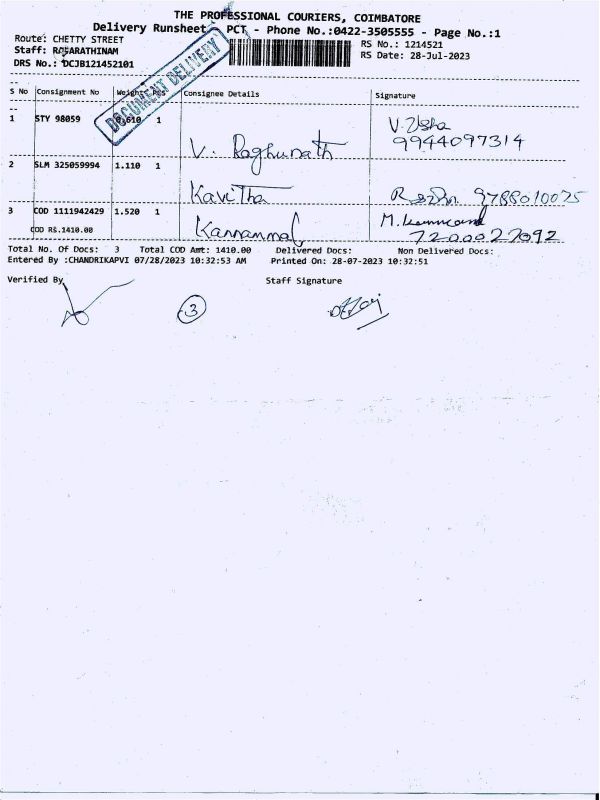 THE PROFESSIONAL COURIERS, COIMBATORE
Delivery Runsheet PCT - Phone No.:0422-3505555 - Page No.:1
Route: CHETTY STREET
RS No.: 1214521
Staff: RAJARATHINAM
RS Date: 28-Jul-2023
DRS No.: DCJB121452101
DOCUMENT DELIVERY
S No Consignment No Weight Pcs Consignee Details Signature
1 STY 98059 0.610 1 V. Raghunath V. Usha
9944097314
2 SLM 325059994 1.110 1 Kavitha 9788010075
3 COD 1111942429 1.520 1 Kannammal M.
COD RS.1410.00 7200027092
Total No. Of Docs: 3 Total COD Amt: 1410.00 Delivered Docs: Non Delivered Docs:
Entered By :CHANDRIKAPVI 07/28/2023 10:32:53 AM Printed On: 28-07-2023 10:32:51
Verified By Staff Signature
3